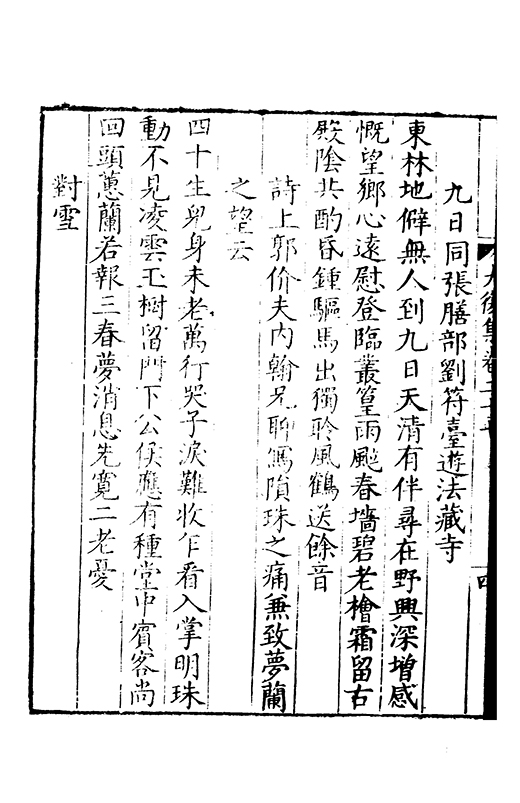 九日同張膳部劉符臺遊法藏寺
東林地僻無人到九日天清有伴尋在野興深增感
慨望鄉心遠慰登臨叢篁雨颭春墻碧老檜霜留古
殿陰共酌昏鍾驅馬出獨聆風鶴送餘音
詩上郭价夫内翰兄聊寫隕珠之痛兼致夢蘭
之望云
四十生兒身未老萬行哭子淚難收乍看入掌明珠
動不見凌雲玉樹留門下公侯應有種堂中賓客尚
回頭蕙蘭若報三春夢消息先寬二老憂
對雪